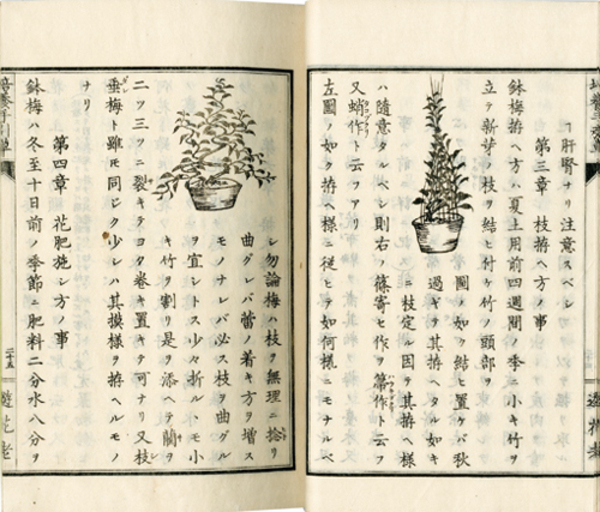 ヿ肝腎ナリ注意スベシ
第三章 枝拵ヘ方ノ事
鉢梅拵ヘ方ハ夏土用前四週間ノ季ニ小キ竹ヲ
立テ新芽ノ枝ヲ結ヒ付ケ竹ノ頭部ヲ
圖ノ如ク結ヒ置ケバ秋
過ギテ其拵ヘタル如キ
ニ枝定ル因テ其拵ヘ様
ハ随意タルベシ則右ノ篠寄セ作ヲ箒作ト云フ
又蛸作ト云フアリ
左圖ノ如ク拵ヘ様ニ従ヒテ如何様ニモナルベ
シ勿論梅ハ枝ヲ無理ニ捻リ
曲グレバ蕾ノ着キ方ヲ増ス
モノナレバ必ス枝ヲ曲グル
ヲ宜シトス少々折ルヽモ小
キ竹ヲ割リ是ヲ添ヘテ藺ヲ
二ツ三ツニ裂キテヨク巻キ置キテ可ナリ又枝
垂梅ト雖モ同ジク少シハ其摸様ヲ拵ヘルモノ
ナリ
第四章 花肥施シ方ノ事
鉢梅ハ冬至十日前ノ季節ニ肥料二分水八分ヲ
二十五